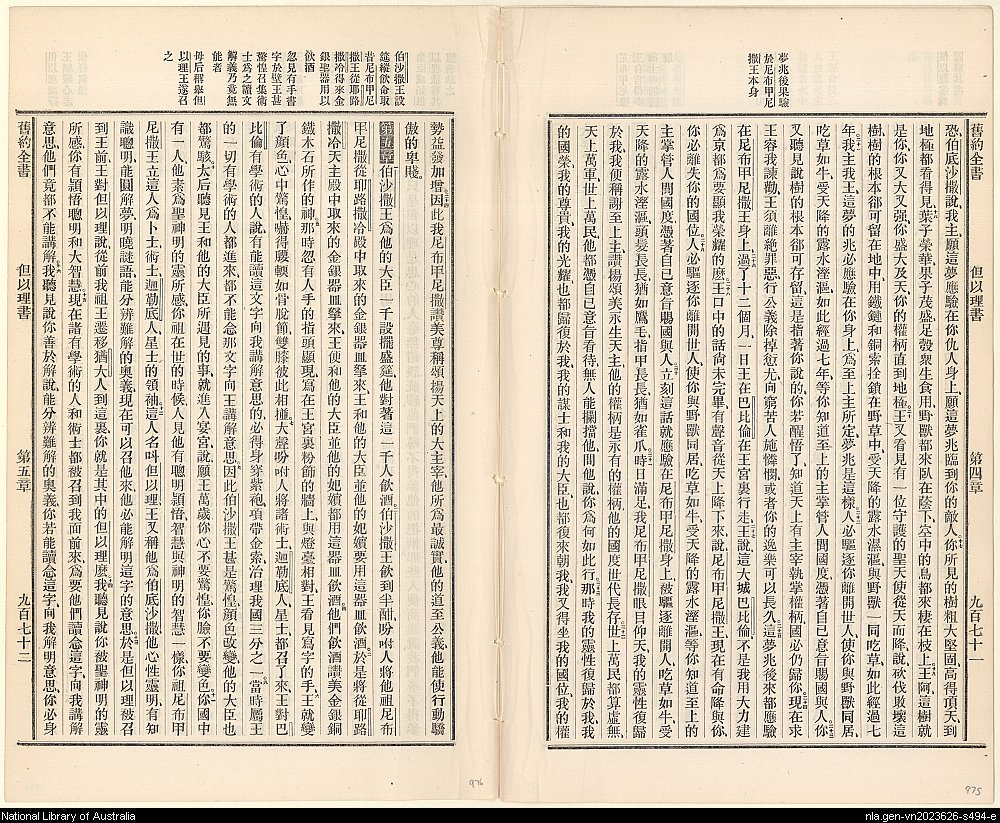 舊約全書 但以理書 第四章 九百七十一
夢兆後果驗
於尼布甲尼
撒王本身
恐伯底沙撒說我主願這夢應驗在你仇人身上願這夢兆臨到你的敵人你所見的樹粗大堅固高得頂天到
地極都看得見葉子榮華果子茂盛足彀衆生食用野獸都來臥在蔭下空中的鳥都來棲在枝上王阿這樹就
是你你又大又强你盛大及天你的權柄直到地極王又看見有一位守護的聖天使從天而降說砍伐敗壞這
樹樹的根本卻可留在地中用鐵鏈和銅索拴鎖在野草中受天降的露水溼漚與野獸一同吃草如此經過七
年我主我王這夢的兆必應驗在你身上爲至上主所定夢兆是這樣人必驅逐你離開世人使你與野獸同居
吃草如牛受天降的露水溼漚如此經過七年等你知道至上的主掌管人間國度憑著自己意旨賜國與人你
又聽見說樹的根本卻可存留這是指著你說的你若醒悟了知道天上有主宰執掌權柄國必仍歸你現在求
王容我諫勸王須離絕罪惡行公義除掉愆尤向窮苦人施憐憫或者你的逸樂可以長久這夢兆後來都應驗
在尼布甲尼撒王身上過了十二個月一日王在巴比倫在王宮裏行走王說這大城巴比倫不是我用大力建
爲京都爲要顯我榮耀的麽王口中的話尙未完畢有聲音從天上降下來說尼布甲尼撒王現在有命降與你
你必離失你的國位人必驅逐你離開世人使你與野獸同居吃草如牛受天降的露水溼漚等你知道至上的
主掌管人間國度憑著自己意旨賜國與人立刻這話就應驗在尼布甲尼撒身上被驅逐離開人吃草如牛受
天降的露水溼漚頭髮長長猶如鷹毛指甲長長猶如雀爪時日滿足我尼布甲尼撒眼目仰天我的靈性復歸
於我我便稱謝至上主讚揚頌美永生天主他的權柄是永有的權柄他的國度世代長存世上萬民都算虛無
天上萬軍世上萬民他都憑自己意旨看待無人能攔擋他問他說你爲何如此行那時我的靈性復歸於我我
的國榮我的尊貴我的光耀也都歸復於我我的謀士和我的大臣也都復來朝我我又得坐我的國位我的權
伯沙撒王設
筵縱飲命取
昔尼布甲尼
撒王從耶路
撒冷得來金
銀聖器用以
飲酒
忽見有手書
字於壁王甚
驚惶召集術
士爲之讀文
解義乃竟無
能者
母后稱舉但
以理王遂召
之
勢益發加增因此我尼布甲尼撒讚美尊稱頌揚天上的大主宰他所爲最誠實他的道至公義他能使行動驕
傲的卑賤
第五章伯沙撒王爲他的大臣一千設擺盛筵他對著這一千人飲酒伯沙撒王飲到半酣吩咐人將他祖尼布
甲尼撒從耶路撒冷殿中取來的金銀器皿拏來王和他的大臣並他的妃嬪要用這器皿飲酒於是將從耶路
撒冷天主殿中取來的金銀器皿拏來王便和他的大臣並他的妃嬪都用這器皿飲酒他們飲酒讚美金銀銅
鐵木石所作的神那時忽有人手的指頭顯現寫在王宮裏粉飾的牆上與燈臺相對王看見寫字的手王就變
了顏色心中驚惶嚇得腰輭如骨脫節雙膝彼此相撞大聲吩咐人將諸術士迦勒底人星士都召了來王對巴
比倫有學術的人說有能讀這文字向我講解意思的必得身穿紫袍項帶金索治理我國三分之一當時屬王
的一切有學術的人都進來都不能念那文字向王講解意思因此伯沙撒王甚是驚惶顏色改變他的大臣也
都驚駭太后聽見王和他的大臣所遇見的事就進入宴宮說願王萬歲你心不要驚惶你臉不要變色你國中
有一人他素爲聖神明的靈所感你祖在世的時候人見他有聰明穎悟智慧與神明的智慧一樣你祖尼布甲
尼撒王立這人爲卜士術士迦勒底人星士的領袖這人名呌但以理王又稱他爲伯底沙撒他心性靈明有知
識聰明能圓解夢明曉謎語能分辨難解的奧義現在可以召他來他必能解明這字的意思於是但以理被召
到王前王對但以理說從前我祖王遷移猶大人到這裏你就是其中的但以理麽我聽見說你被聖神明的靈
所感你有穎悟聰明和大智慧現在諸有學術的人和術士都被召到我面前來爲要他們讀念這字向我講解
意思他們竟都不能講解我聽見說你善於解說能分辨難解的奧義你若能讀念這字向我解明意思你必身
舊約全書 但以理書 第五章 九百七十二
976
975
National Library of Australia
nla.gen-vn2023626-s494-e